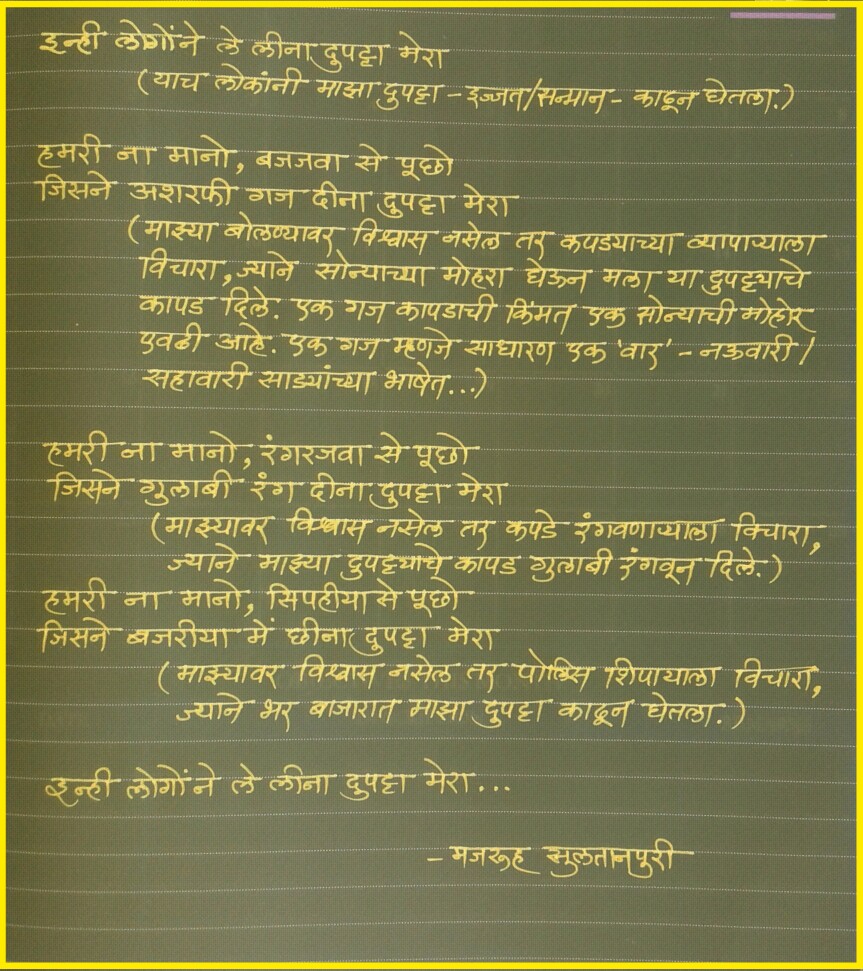 इन्ही लोगोंने ले लीना दुपट्टा मेरा
(याच लोकांनी माझा दुपट्टा - इज्जत/सन्मान - काढून घेतला.)
हमरी ना मानो, बजजवा से पूछो
जिसने अशरफी गज दीना दुपट्टा मेरा
(माझ्या बोलण्यावर विश्वास नसेल तर कपड्याच्या व्यापाऱ्याला
विचारा, ज्याने सोन्याच्या मोहरा घेऊन मला या दुपट्ट्याचे
कापड दिले. एक गज कापडाची किंमत एक सोन्याची मोहोर
एवढी आहे. एक गज म्हणजे साधारण एक 'वार' - नऊवारी /
सहावारी साड्यांच्या भाषेत...)
हमरी ना मानो, रंगरजवा से पूछो
जिसने गुलाबी रंग दीना दुपट्टा मेरा
(माझ्यावर विश्वास नसेल तर कपडे रंगवणाऱ्याला विचारा,
ज्याने माझ्या दुपट्ट्याचे कापड गुलाबी रंगवून दिले.)
हमरी ना मानो, सिपहीया से पूछो
जिसने बजरीया में छीना दुपट्टा मेरा
(माझ्यावर विश्वास नसेल तर पोलिस शिपायाला विचारा,
ज्याने भर बाजारात माझा दुपट्टा काढून घेतला.)
इन्ही लोगोंने ले लीना दुपट्टा मेरा...
- मजरूह सुलतानपुरी